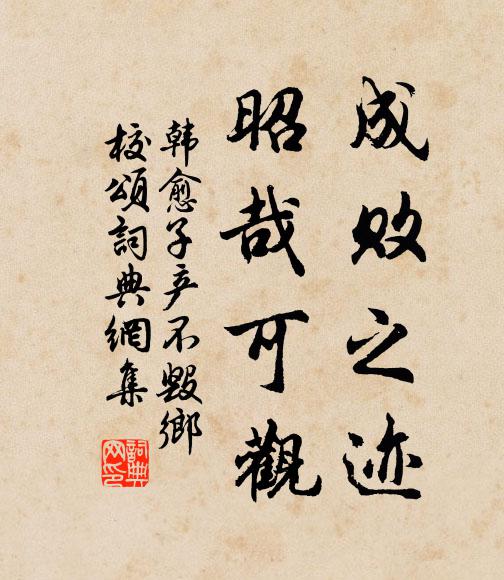 成败之迹
昭哉可觀
韩愈子产不毁鄉
校頌詞典網集
詞典
网印